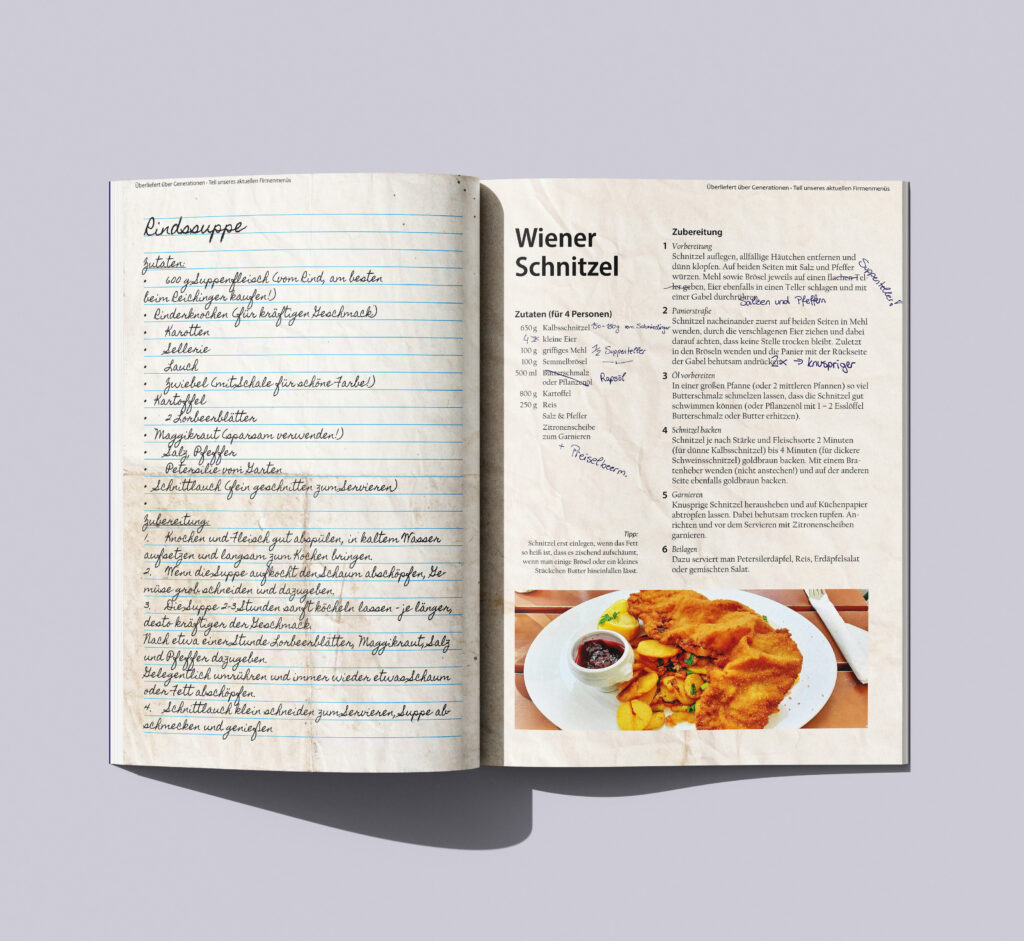 Überliefert über Generationen - Teil unseres aktuellen Firmenmenüs
Rindssuppe
Zutaten:
• 600 g Suppenfleisch (vom Rind, am besten
beim Reichinger kaufen!)
• Rinderknochen (für kräftigen Geschmack)
• Karotten
• Sellerie
• Lauch
• Zwiebel (mit Schale für schöne Farbe!)
• Kartoffel
• 2 Lorbeerblätter
• Maggikraut (sparsam verwenden!)
• Salz, Pfeffer
• Petersilie vom Garten
• Schnittlauch (fein geschnitten zum Servieren)
•
Zubereitung:
1. Knochen und Fleisch gut abspülen, in kaltem Wasser
aufsetzen und langsam zum Kochen bringen.
2. Wenn die Suppe aufkocht den Schaum abschöpfen, Ge-
müse grob schneiden und dazugeben.
3. Die Suppe 2-3 Stunden sanft köcheln lassen - je länger,
desto kräftiger der Geschmack.
Nach etwa einer Stunde Lorbeerblätter, Maggikraut, Salz
und Pfeffer dazugeben.
Gelegentlich umrühren und immer wieder etwas Schaum
oder Fett abschöpfen.
4. Schnittlauch klein schneiden zum Servieren, Suppe ab-
schmecken und genießen
Überliefert über Generationen - Teil unseres aktuellen Firmenmenüs
Wiener
Schnitzel
Zutaten (für 4 Personen)
650 g Kalbsschnitzel 150-180g vom
4x kleine Eier
100 g griffiges Mehl ½ Suppenteller
100 g Semmelbrösel
500 ml Butterschmalz
oder Pflanzenöl Rapsöl
800 g Kartoffel
250 g Reis
Salz & Pfeffer
Zitronenscheibe
zum Garnieren
+ Preiselbeerm.
Tipp:
Schnitzel erst einlegen, wenn das Fett
so heiß ist, dass es zischend aufschäumt,
wenn man einige Brösel oder ein kleines
Stückchen Butter hineinfallen lässt.
Zubereitung
1 Vorbereitung
Schnitzel auflegen, allfällige Häutchen entfernen und
dünn klopfen. Auf beiden Seiten mit Salz und Pfeffer
würzen. Mehl sowie Brösel jeweils auf einen flachen Tel-
ler geben, Eier ebenfalls in einen Teller schlagen und mit
einer Gabel durchrühren.
Suppenteller!
Salzen und Pfeffern
2 Panierstraße
Schnitzel nacheinander zuerst auf beiden Seiten in Mehl
wenden, durch die verschlagenen Eier ziehen und dabei
darauf achten, dass keine Stelle trocken bleibt. Zuletzt
in den Bröseln wenden und die Panier mit der Rückseite
der Gabel behutsam andrücken. 2x → knuspriger
3 Öl vorbereiten
In einer großen Pfanne (oder 2 mittleren Pfannen) so viel
Butterschmalz schmelzen lassen, dass die Schnitzel gut
schwimmen können (oder Pflanzenöl mit 1 – 2 Esslöffel
Butterschmalz oder Butter erhitzen).
4 Schnitzel backen
Schnitzel je nach Stärke und Fleischsorte 2 Minuten
(für dünne Kalbsschnitzel) bis 4 Minuten (für dickere
Schweinsschnitzel) goldbraun backen. Mit einem Bra-
tenheber wenden (nicht anstechen!) und auf der anderen
Seite ebenfalls goldbraun backen.
5 Garnieren
Knusprige Schnitzel herausheben und auf Küchenpapier
abtropfen lassen. Dabei behutsam trocken tupfen. An-
richten und vor dem Servieren mit Zitronenscheiben
garnieren.
6 Beilagen
Dazu serviert man Petersilerdäpfel, Reis, Erdäpfelsalat
oder gemischten Salat.